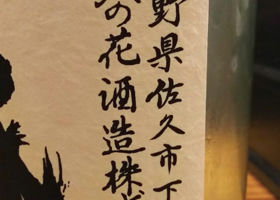 野県佐久市下
の花酒造株